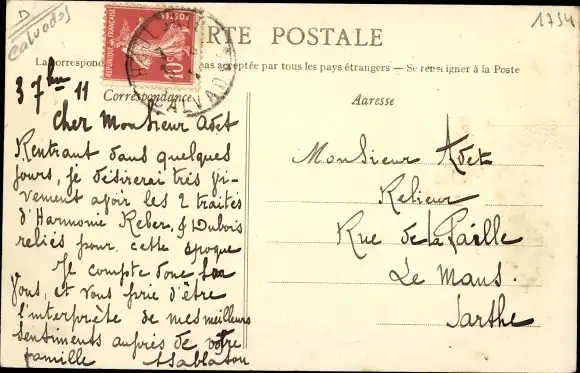 D
Calvados
1734
CARTE POSTALE
La correspondance pas acceptée par tous les pays étrangers — Se renseigner à la Poste
REPUBLIQUE FRANÇAISE
POSTES
10c
CALVADOS
Correspondance
Adresse
3 7bre 11
Cher Monsieur Adet
Rentrant dans quelques
jours, je désirerai très vi-
vement avoir les 2 traités
d'Harmonie Reber & Dubois
reliés pour cette époque
Je compte donc sur
vous, et vous prie d'être
l'interprète de mes meilleurs
sentiments auprès de votre
famille
Monsieur Adet
Relieur
Rue de la Paille
Le Mans.
Sarthe